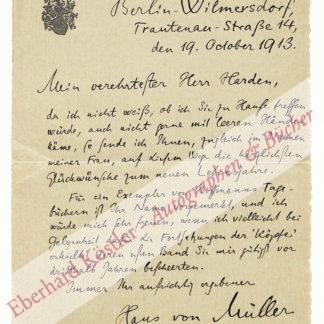 Berlin-Wilmersdorf,
Trautenau-Straße 14,
den 19. October 1913.
Mein verehrtester Herr Harden,
da ich nicht weiß, ob ich Sie zu Hause treffen
würde, auch nicht gerne mit leeren Händen
käme, so sende ich Ihnen, zugleich im Namen
meiner Frau, auf diesem Wege die herzlichsten
Glückwünsche zum neuen Lebensjahre.
Für ein Exemplar von Hoffmanns Tage-
büchern ist Ihr Name vorgemerkt, und ich
würde mich sehr freuen, wenn ich vielleicht bei
Gelegenheit die Fortsetzungen der 'Köpfe'
Band Sie mir gütigst vor
Jahren bescherten.
Immer Ihr aufrichtig ergebener
Hans von Müller
Eberhard Köstler Autographen & Bücher